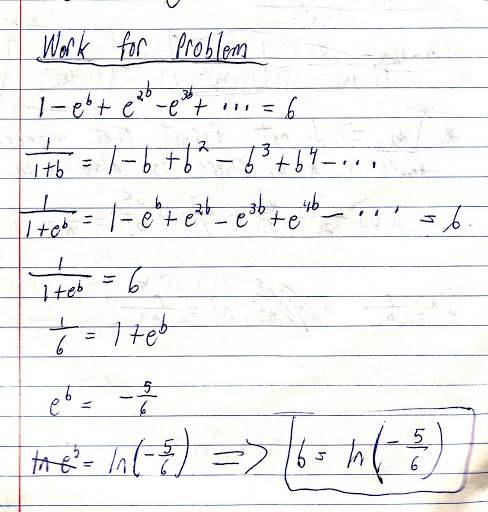 Work for Problem
1 - e^b + e^{2b} - e^{3b} + ... = 6
\frac{1}{1+b} = 1 - b + b^2 - b^3 + b^4 - ...
\frac{1}{1+e^b} = 1 - e^b + e^{2b} - e^{3b} + e^{4b} - ... = 6
\frac{1}{1+e^b} = 6
\frac{1}{6} = 1 + e^b
e^b = -\frac{5}{6}
ln e^b = ln(-\frac{5}{6}) => b = ln(-\frac{5}{6})